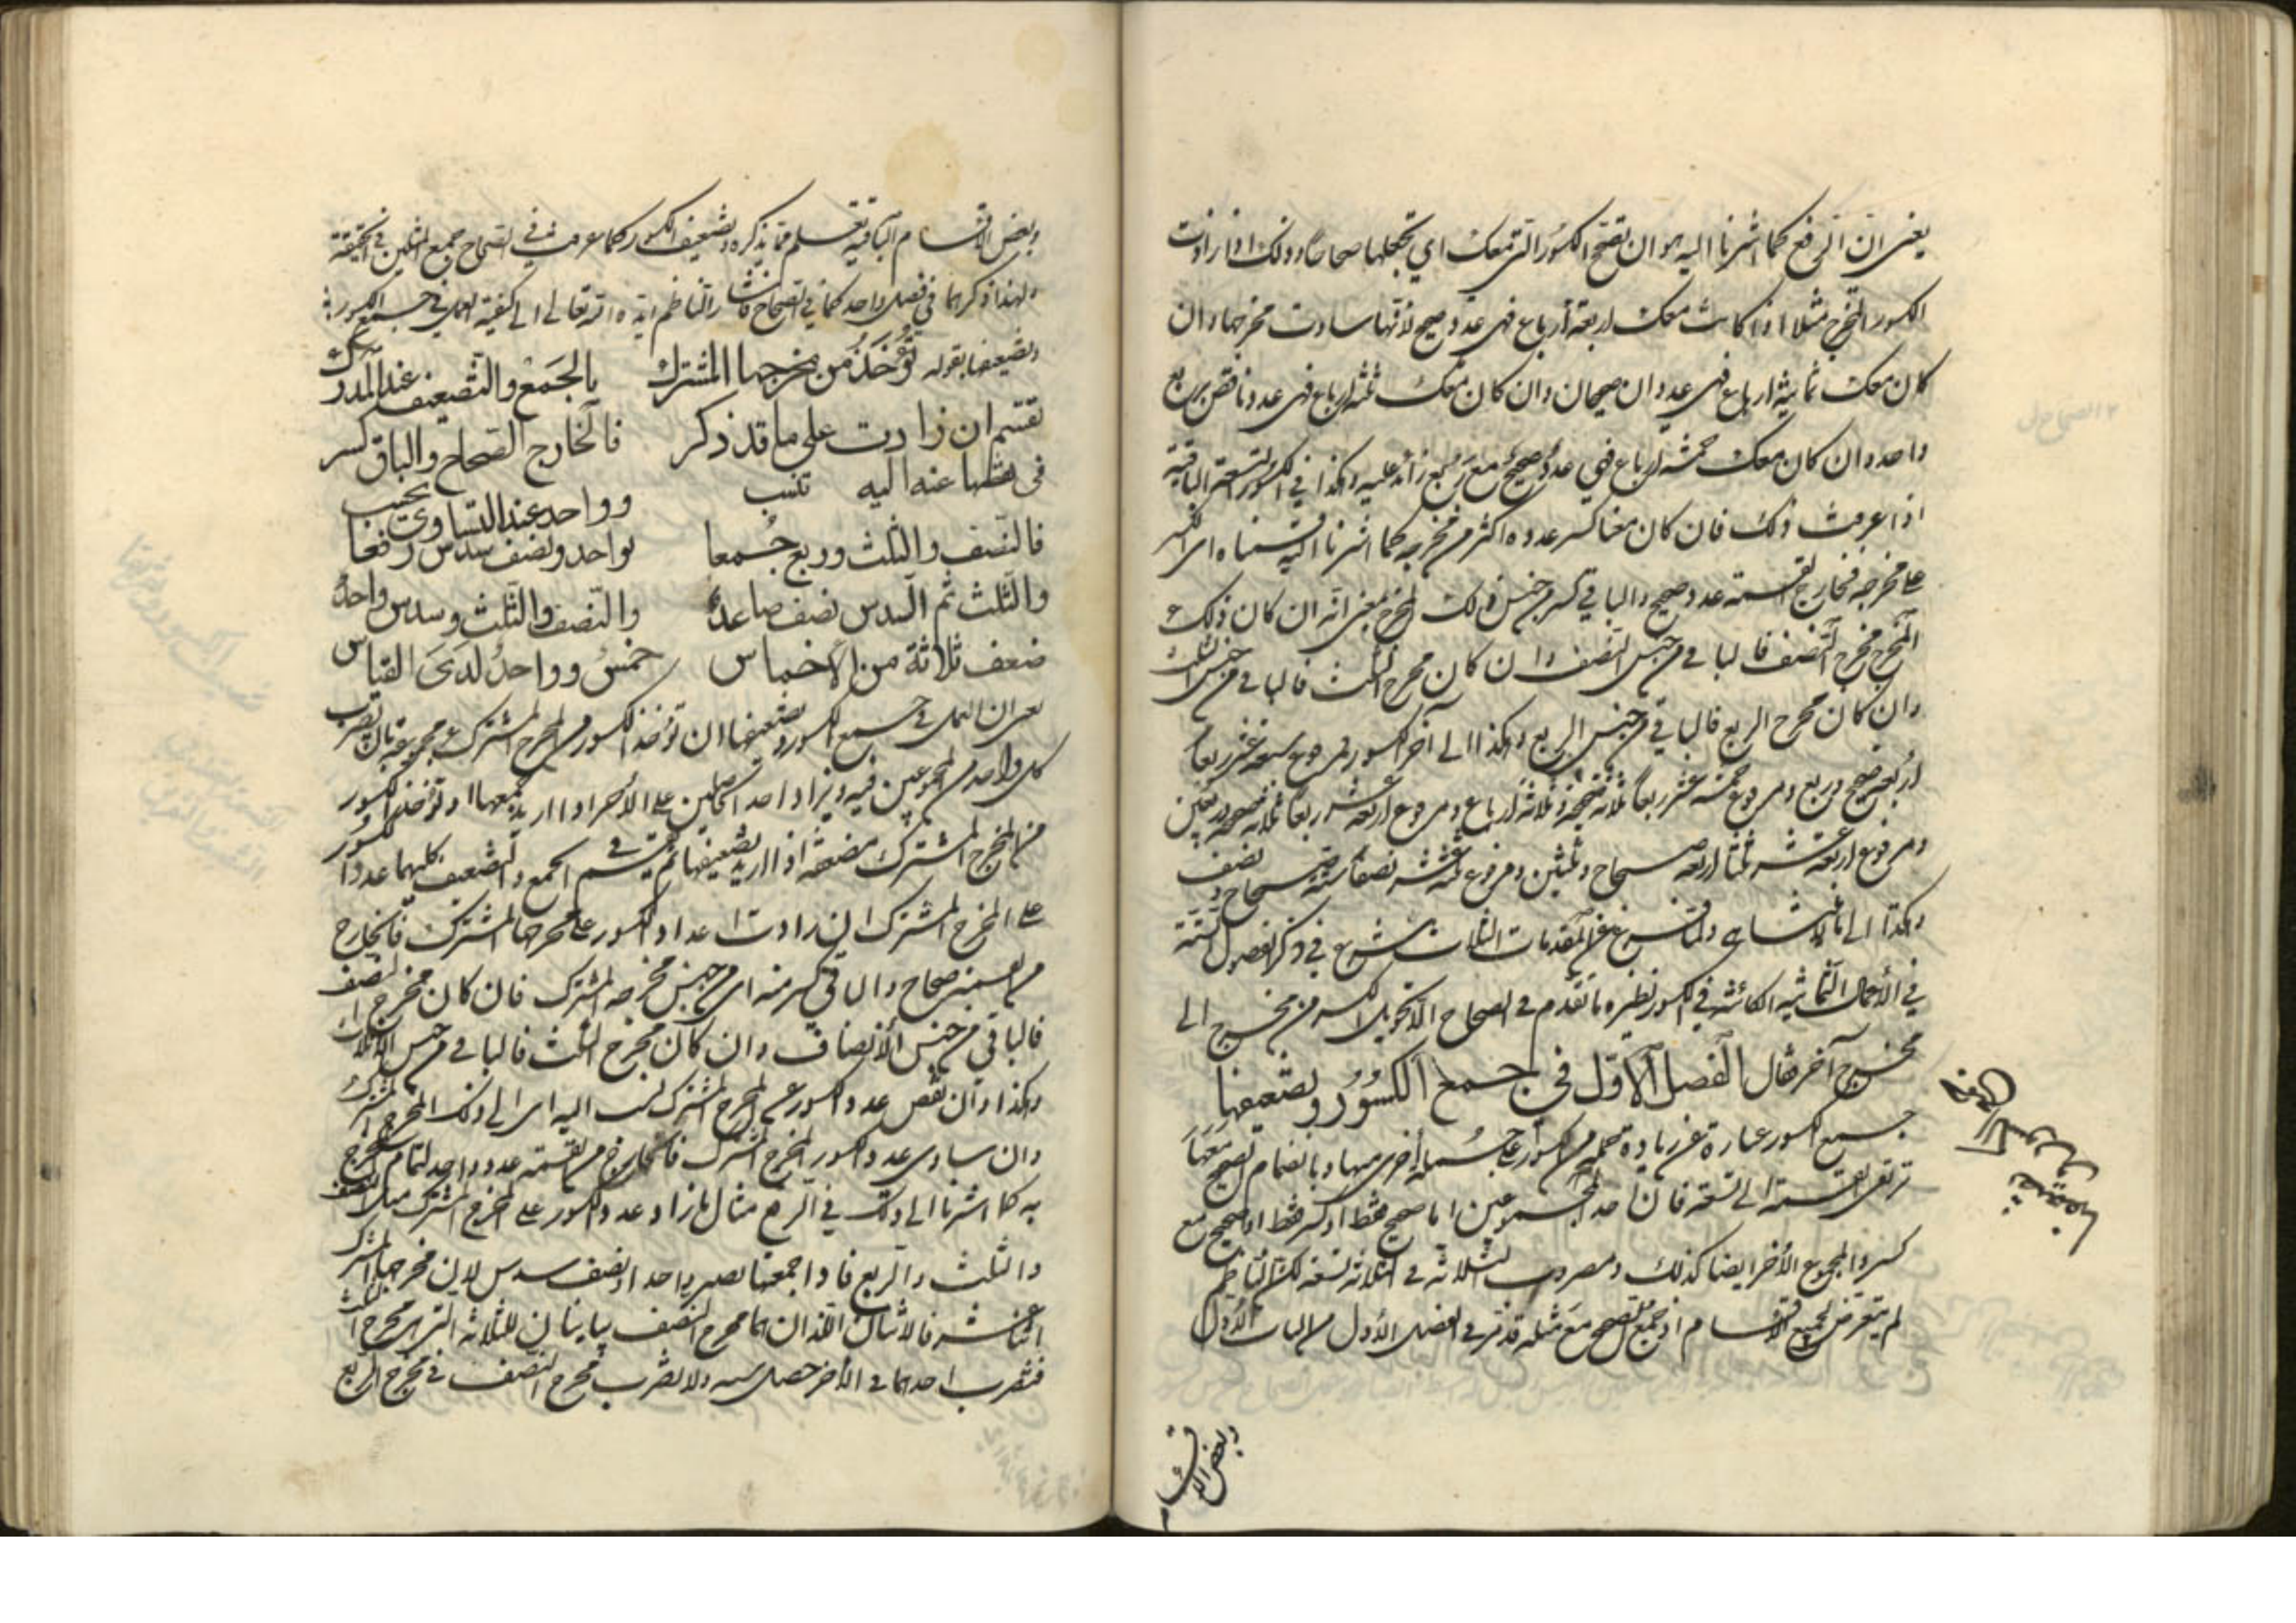 يعنى ان الرفع كما اشرنا اليه هو ان تصحح الكسور التى معك اي تجعلها صحاحا وذلك اذا زادت
الكسور المخرج مثلا اذا كانت معك اربعة أرباع فهى عدد صحيح لانها ساوت مخرجها وان
كان معك ثمانية ارباع فهى عددان صحيحان وان كان معك ثلثة ارباع فهى عدد ناقص بربع
واحد وان كان معك خمسة ارباع فهي عدد صحيح مع ربع زائد عليه وهكذا في الكسور التسعة الباقية
اذا عرفت ذلك فان كان معنا كسر عدده اكثر من مخرجه كما اشرنا اليه قسمناه اى الكسر
على مخرجه فخارج القسمة عدد صحيح والباقي كسر من جنس ذلك المخرج بمعنى انه ان كان ذلك
المخرج مخرج النصف فالباقي من جنس النصف وان كان مخرج الثلث فالباقي من جنس الثلث
وان كان مخرج الربع فالباقي من جنس الربع وهكذا الى آخر الكسور فمرفوع سبعة عشر ربعا
اربعة صحيح وربع ومرفوع خمسة عشر ربعا ثلاثة صحيحة وثلاثة ارباع ومرفوع اربعة عشر ربعا ثلاثة صحيحة وربعين
ومرفوع اربعة عشر ثلثا اربعة صحاح وثلثين ومرفوع ثلثة عشر نصفا ستة صحاح ونصف
وهكذا الى ما لا يتناهى ولما فرغ من المقدمات الثلاث شرع في ذكر الفصول الستة
في الأعمال الثمانية الكائنة في الكسور نظيره ما تقدم في الصحاح الا تحويل الكسر من مخرج الى
مخرج آخر فقال الفصل الأول في جمع الكسور وتضعيفها
جمع الكسور عبارة عن زيادة جملة من الكسور على جملة أخرى منها وبانضمام الصحيح معها
ترتقى القسمة الى تسعة فان احد المجموعين اما صحيح فقط او كسر فقط او صحيح مع
كسر والمجموع الأخر ايضا كذلك ومضروب الثلاثة في الثلاثة تسعة لكن الناظم
لم يتعرض لجميع الأقسام اذ جمع الصحيح مع مثله قد مر في الفصل الأول من الباب الأول
الفصل الاول في جمع الكسور وتضعيفها
وبعض الاقسام
وبعض الاقسام الباقية تعلم مما يذكره وتضعيف الكسور كما عرفت في الصحاح جمع المثلين في الحقيقة
ولهذا ذكرهما في فصل واحد كما في الصحاح فاشار الناظم ايده الله تعالى الى كيفية العمل في جمع الكسور
وتضعيفها بقوله تؤخذ من مخرجها المشترك بالجمع والتضعيف عند المدرك
تقسم ان زادت على ما قد ذكر فالخارج الصحاح والباق كسر
فى نقصها عنه اليه تنسب وواحد عند التساوى يحسب
فالنصف والثلث وربع جمعا بواحد ونصف سدس رفعا
والثلث ثم السدس نصف صاعدًا والنصف والثلث وسدس واحدًا
ضعف ثلاثة من الأخماس خمس وواحد لدى القياس
يعنى ان العمل في جمع الكسور وتضعيفها ان تؤخذ الكسور من المخرج المشترك مجموعة بان يضرب
كل واحد من المجموعين فيه ويزاد احد الحاصلين على الأخر اذا اريد جمعها او تؤخذ الكسور
من المخرج المشترك مضعفة اذا اريد تضعيفها ثم يقسم في الجمع والتضعيف كليهما عدد الكسور
على المخرج المشترك ان زادت اعداد الكسور على مخرجها المشترك فالخارج
من القسمة صحاح والباقي كسر منه اى من جنس مخرجه المشترك فان كان مخرج النصف
فالباقي من جنس الأنصاف وان كان مخرج الثلث فالباقي من جنس الاثلاث
وهكذا وان نقص عدد الكسور عن المخرج المشترك نسب اليه اى الى ذلك المخرج المشترك
وان ساوى عدد الكسور المخرج المشترك فالخارج من القسمة عدد واحد لتمام المخرج
به كما اشرنا الى ذلك في الرفع مثال ما زاد عدد الكسور على المخرج المشترك مثل النصف
والثلث والربع فاذا جمعتها يصير واحدا ونصف سدس لان مخرجها المشترك
اثنا عشر فالاثنان اللذان هما مخرج النصف يباينان للثلاثة التى هى مخرج الثلث
فتضرب احدهما في الأخر حصل ستة ولا تضرب مخرج النصف في مخرج الربع